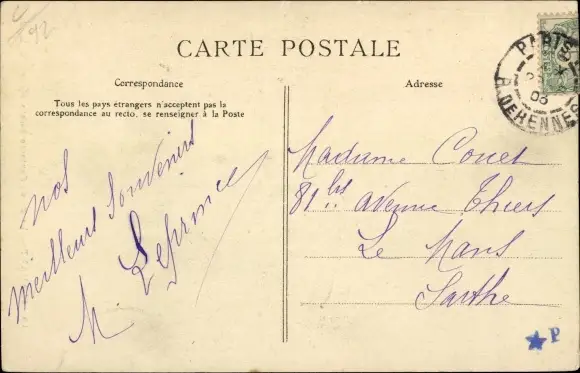 CARTE POSTALE
Correspondance
Adresse
Tous les pays étrangers n'acceptent pas la
correspondance au recto, se renseigner à la Poste
Nos
meilleurs Souvenirs
M. Leprince
PARIS
R. DERENNES
08
Madame Couet
81 bis avenue Thiers
Le Mans
Sarthe
P